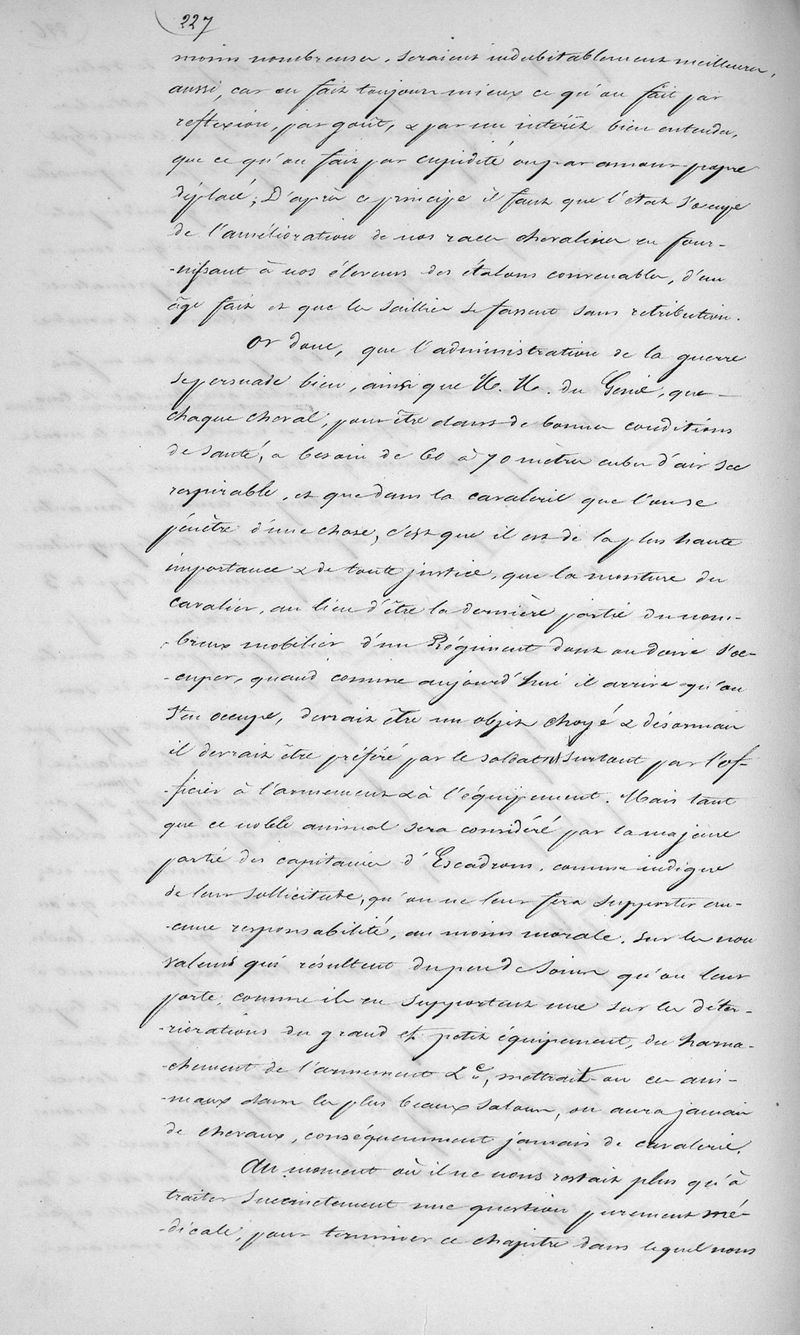 227
moins nombreuses, seraient indubitablement meilleures,
aussi, car on fait toujours mieux ce qu'on fait par
réflexion, par goût, & par un intérêt bien entendu,
que ce qu'on fait par cupidité ou par amour propre
déplacé; D'après ce principe il faut que l'état s'occupe
de l'amélioration de nos races chevalines en four-
-nissant à nos éleveurs des étalons convenables, d'un
âge fait et que les saillies se fassent sans retribution.
Or donc, que l'administration de la guerre
se persuade bien, ainsi que M. M. du Génie, que
chaque cheval, pour être dans de bonnes conditions
de santé, a besoin de 60 à 70 mètres cubes d'air sec
respirable, et que dans la cavalerie que l'on se
pénètre d'une chose, c'est que il est de la plus haute
importance & de toute justice, que la monture du
cavalier, au lieu d'être la dernière partie du nom-
-breux mobilier d'un Régiment dont on doive s'oc-
-cuper, quand comme aujourd'hui il arrive qu'on
s'en occupe, devrait être un objet choyé & désormais
il devrait être préféré par le soldat & surtout par l'of-
-ficier à l'armement & à l'équipement. Mais tant
que ce noble animal sera considéré par la majeure
partie des capitaines d'Escadrons, comme indigne
de leur sollicitude, qu'on ne leur fera supporter au-
-cune responsabilité, au moins morale, sur les non
valeurs qui résultent du peu de soins qu'on leur
porte, comme ils en supportent une sur les déter-
-riorations du grand et petit équipement, du harna-
-chement de l'armement &c., mettrait-on ces ani-
-maux dans les plus beaux salons, on aura jamais
de chevaux, conséquemment jamais de cavalerie.
Au moment où il ne nous restait plus qu'à
traiter succinctement une question purement mé-
-dicale, pour terminer ce chapitre dans lequel nous